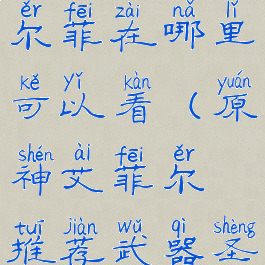 ěr fēi zài nǎ lǐ
尔菲在哪里
kě yǐ kàn yuán
可以看(原
shén ài fēi ěr
神艾菲尔
tuī jiàn wǔ qì shèng
推荐武器圣